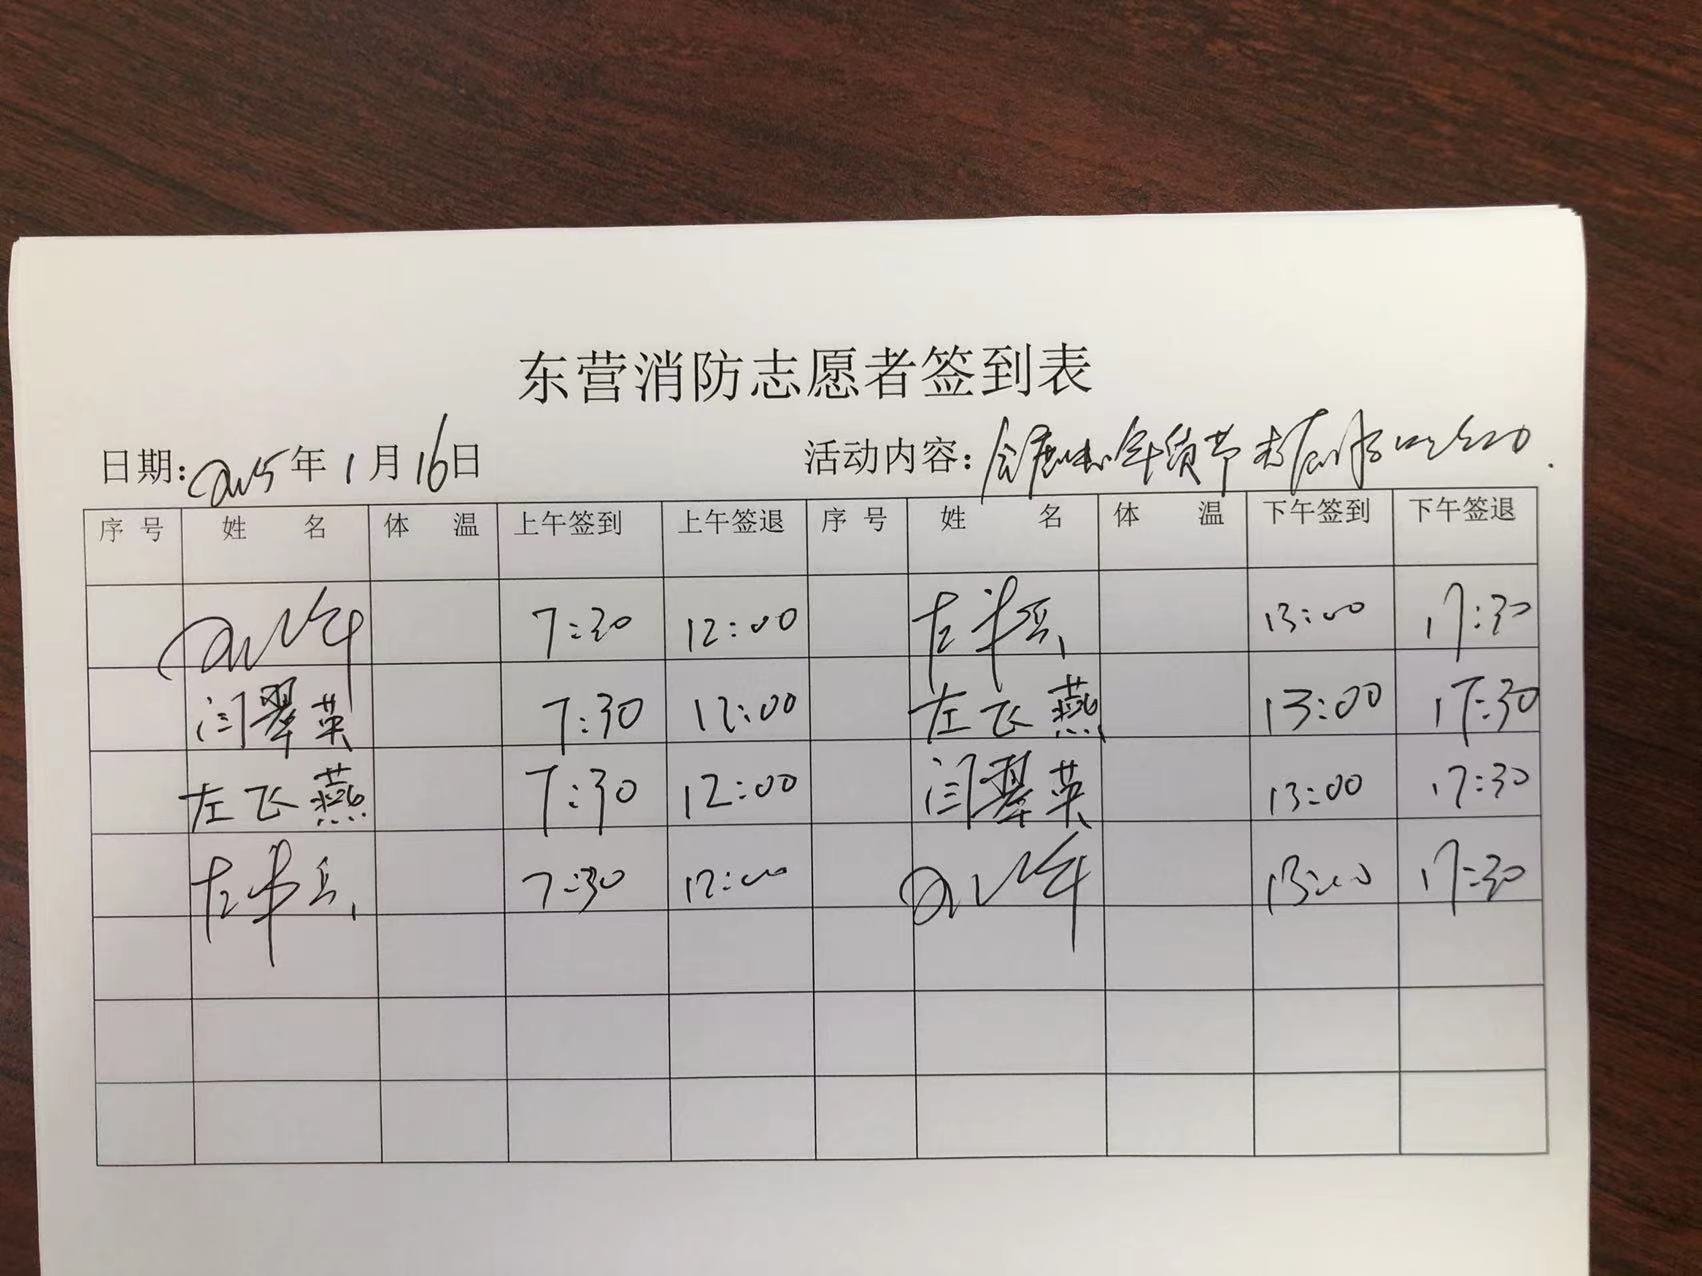 东营消防志愿者签到表
日期: 2025年1月16日 活动内容: 会展中心年货节志愿服务活动.
序号 姓 名 体 温 上午签到 上午签退 序号 姓 名 体 温 下午签到 下午签退
7:30 12:00 左 兵 13:00 17:30
闫翠英 7:30 12:00 左飞燕 13:00 17:30
左飞燕 7:30 12:00 闫翠英 13:00 17:30
左 兵 7:30 12:00 13:00 17:30